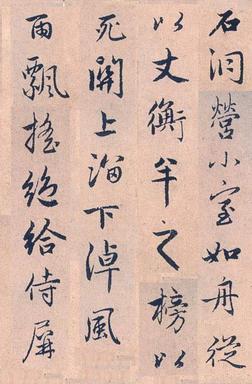 石洞營小室如舟從
以丈衡半之榜以
死關上溜下淖風
雨飄搖絕給侍屏